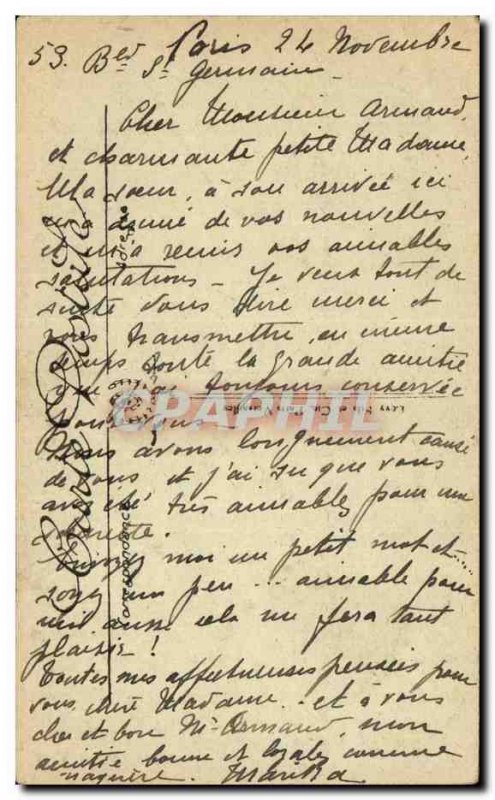 Paris 24 Novembre
53. Bd St Germain
Cher Monsieur Armand,
et charmante petite Madame,
Ma sœur, à son arrivée ici
m'a donné de vos nouvelles
et m'a remis vos aimables
salutations - Je veux tout de
suite vous dire merci et
vous transmettre, en même
temps toute la grande amitié
que j'ai toujours conservée
pour vous.
Nous avons longuement causé
de vous et j'ai su que vous
avez été très aimables pour ma
Envoyez moi un petit mot et....
soyez un peu ... aimable pour
moi aussi cela me fera tant
plaisir!
Toutes mes affectueuses pensées pour
vous, chère Madame. et à vous
cher et bon Mr Armand, mon
amitié bonne et loyale comme
naguère. Marika
Carte Postale
Correspondance
Adresse
CPAPHIL